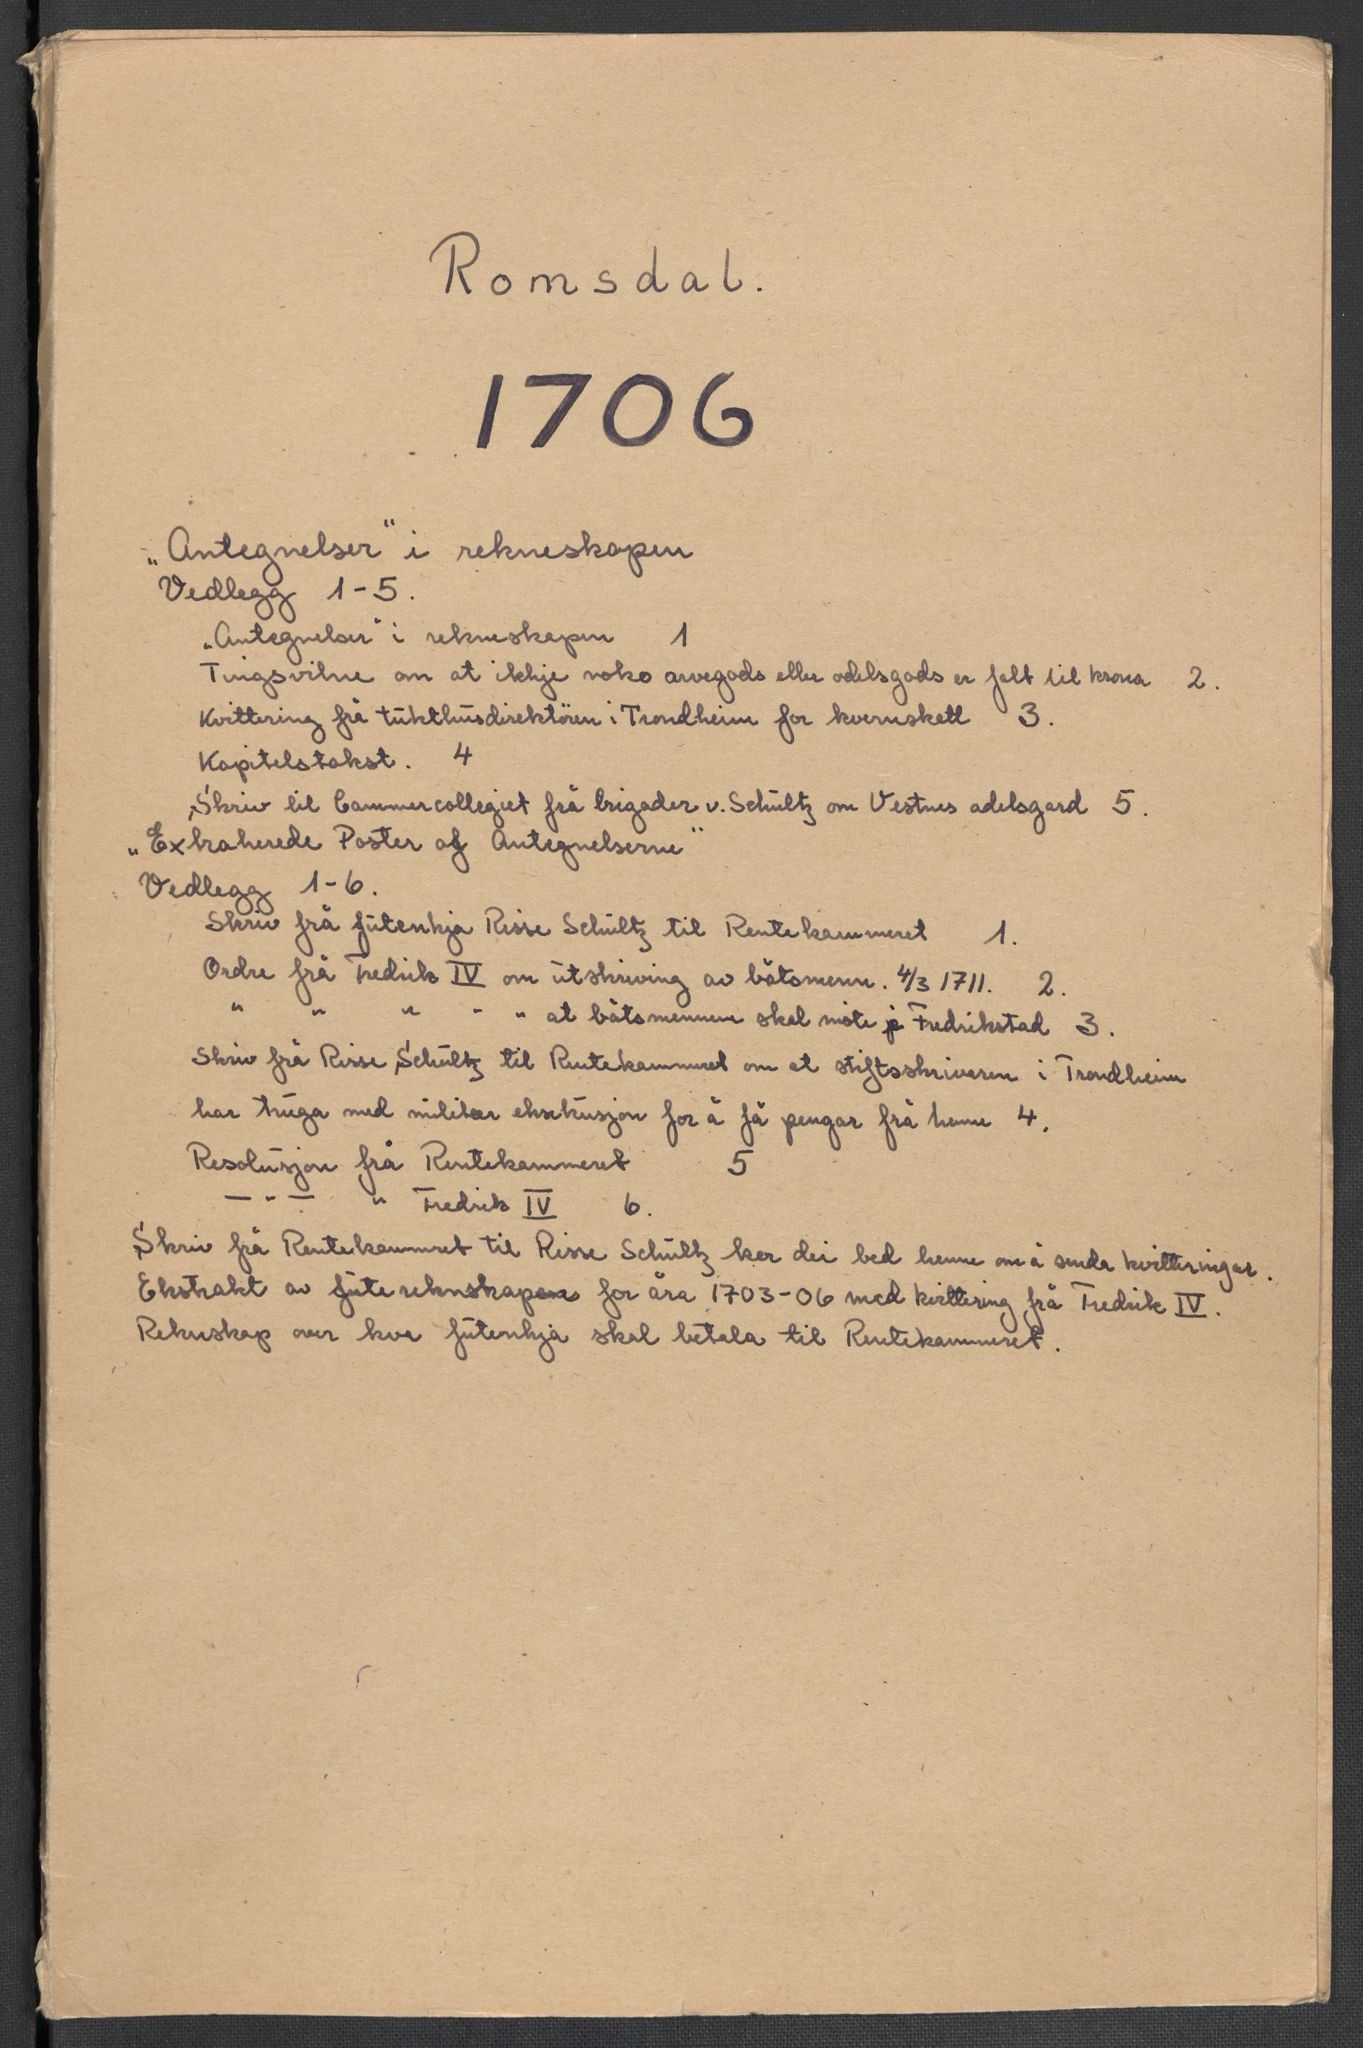 Romsdal.
1706
„Antegnelser" i rekneskapen
Vedlegg 1-5.
„Antegnelser" i rekneskapen 1
Tingsvitne om at ikkje noko arvegods eller odelsgods er falt til krona 2.
Kvittering frå tukthusdirektören i Trondheim for kvernskatt 3.
Kapitelstakst. 4
Skriv til Cammercollegiet frå brigader v. Schultz om Vestnes adelsgard 5.
„Extraherede Poster af Antegnelserne"
Vedlegg 1-6.
Skriv frå futenkja Risse Schultz til Rentekammeret 1.
Ordre frå Fredrik IV om utskriving av båtsmenn. 4/3 1711. 2.
" " " " " at båtsmennene skal möte på Fredrikstad 3.
Skriv frå Risse Schultz til Rentekammeret om at stiftsskrivaren i Trondheim
har truga med militær eksekusjon for å få pengar frå henne 4.
Resolusjon frå Rentekammeret 5
— " — " Fredrik IV 6.
Skriv frå Rentekammeret til Risse Schultz kor dei bed henne om å senda kvitteringar.
Ekstrakt av futerekneskapen for åra 1703-06 med kvittering frå Fredrik IV.
Rekneskap over kva futenkja skal betala til Rentekammeret.